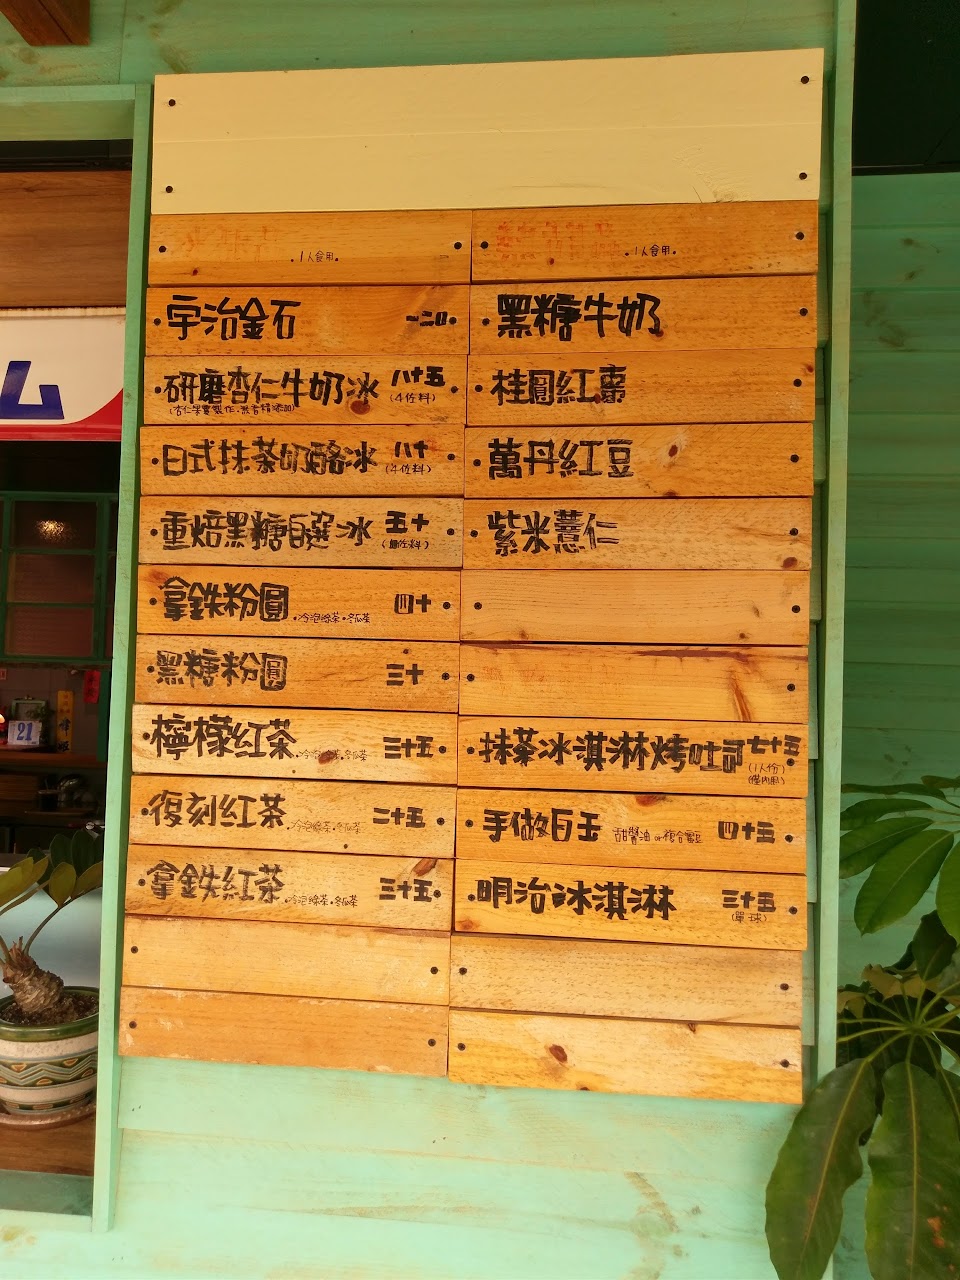 ム
21
•1人食用•
•1人食用•
宇治金石 一二0
黑糖牛奶
研磨杏仁牛奶冰 八十五
(杏仁果實製作.無香精添加) (4佐料)
桂圓紅棗
日式抹茶奶酪冰 八十
(4佐料)
萬丹紅豆
重焙黑糖自選冰 五十
紫米薏仁
拿鉄粉圓 •冷泡綠茶•冬瓜茶 四十
黑糖粉圓 三十
檸檬紅茶 •冷泡綠茶•冬瓜茶 三十五
抹茶冰淇淋烤吐司 七十五
(1人份)
(僅內用)
復刻紅茶 •冷泡綠茶•冬瓜茶 二十五
手做白玉 甜醬油 or 複合 四十五
拿鉄紅茶 •冷泡綠茶•冬瓜茶 三十五
明治冰淇淋 三十五
(單球)